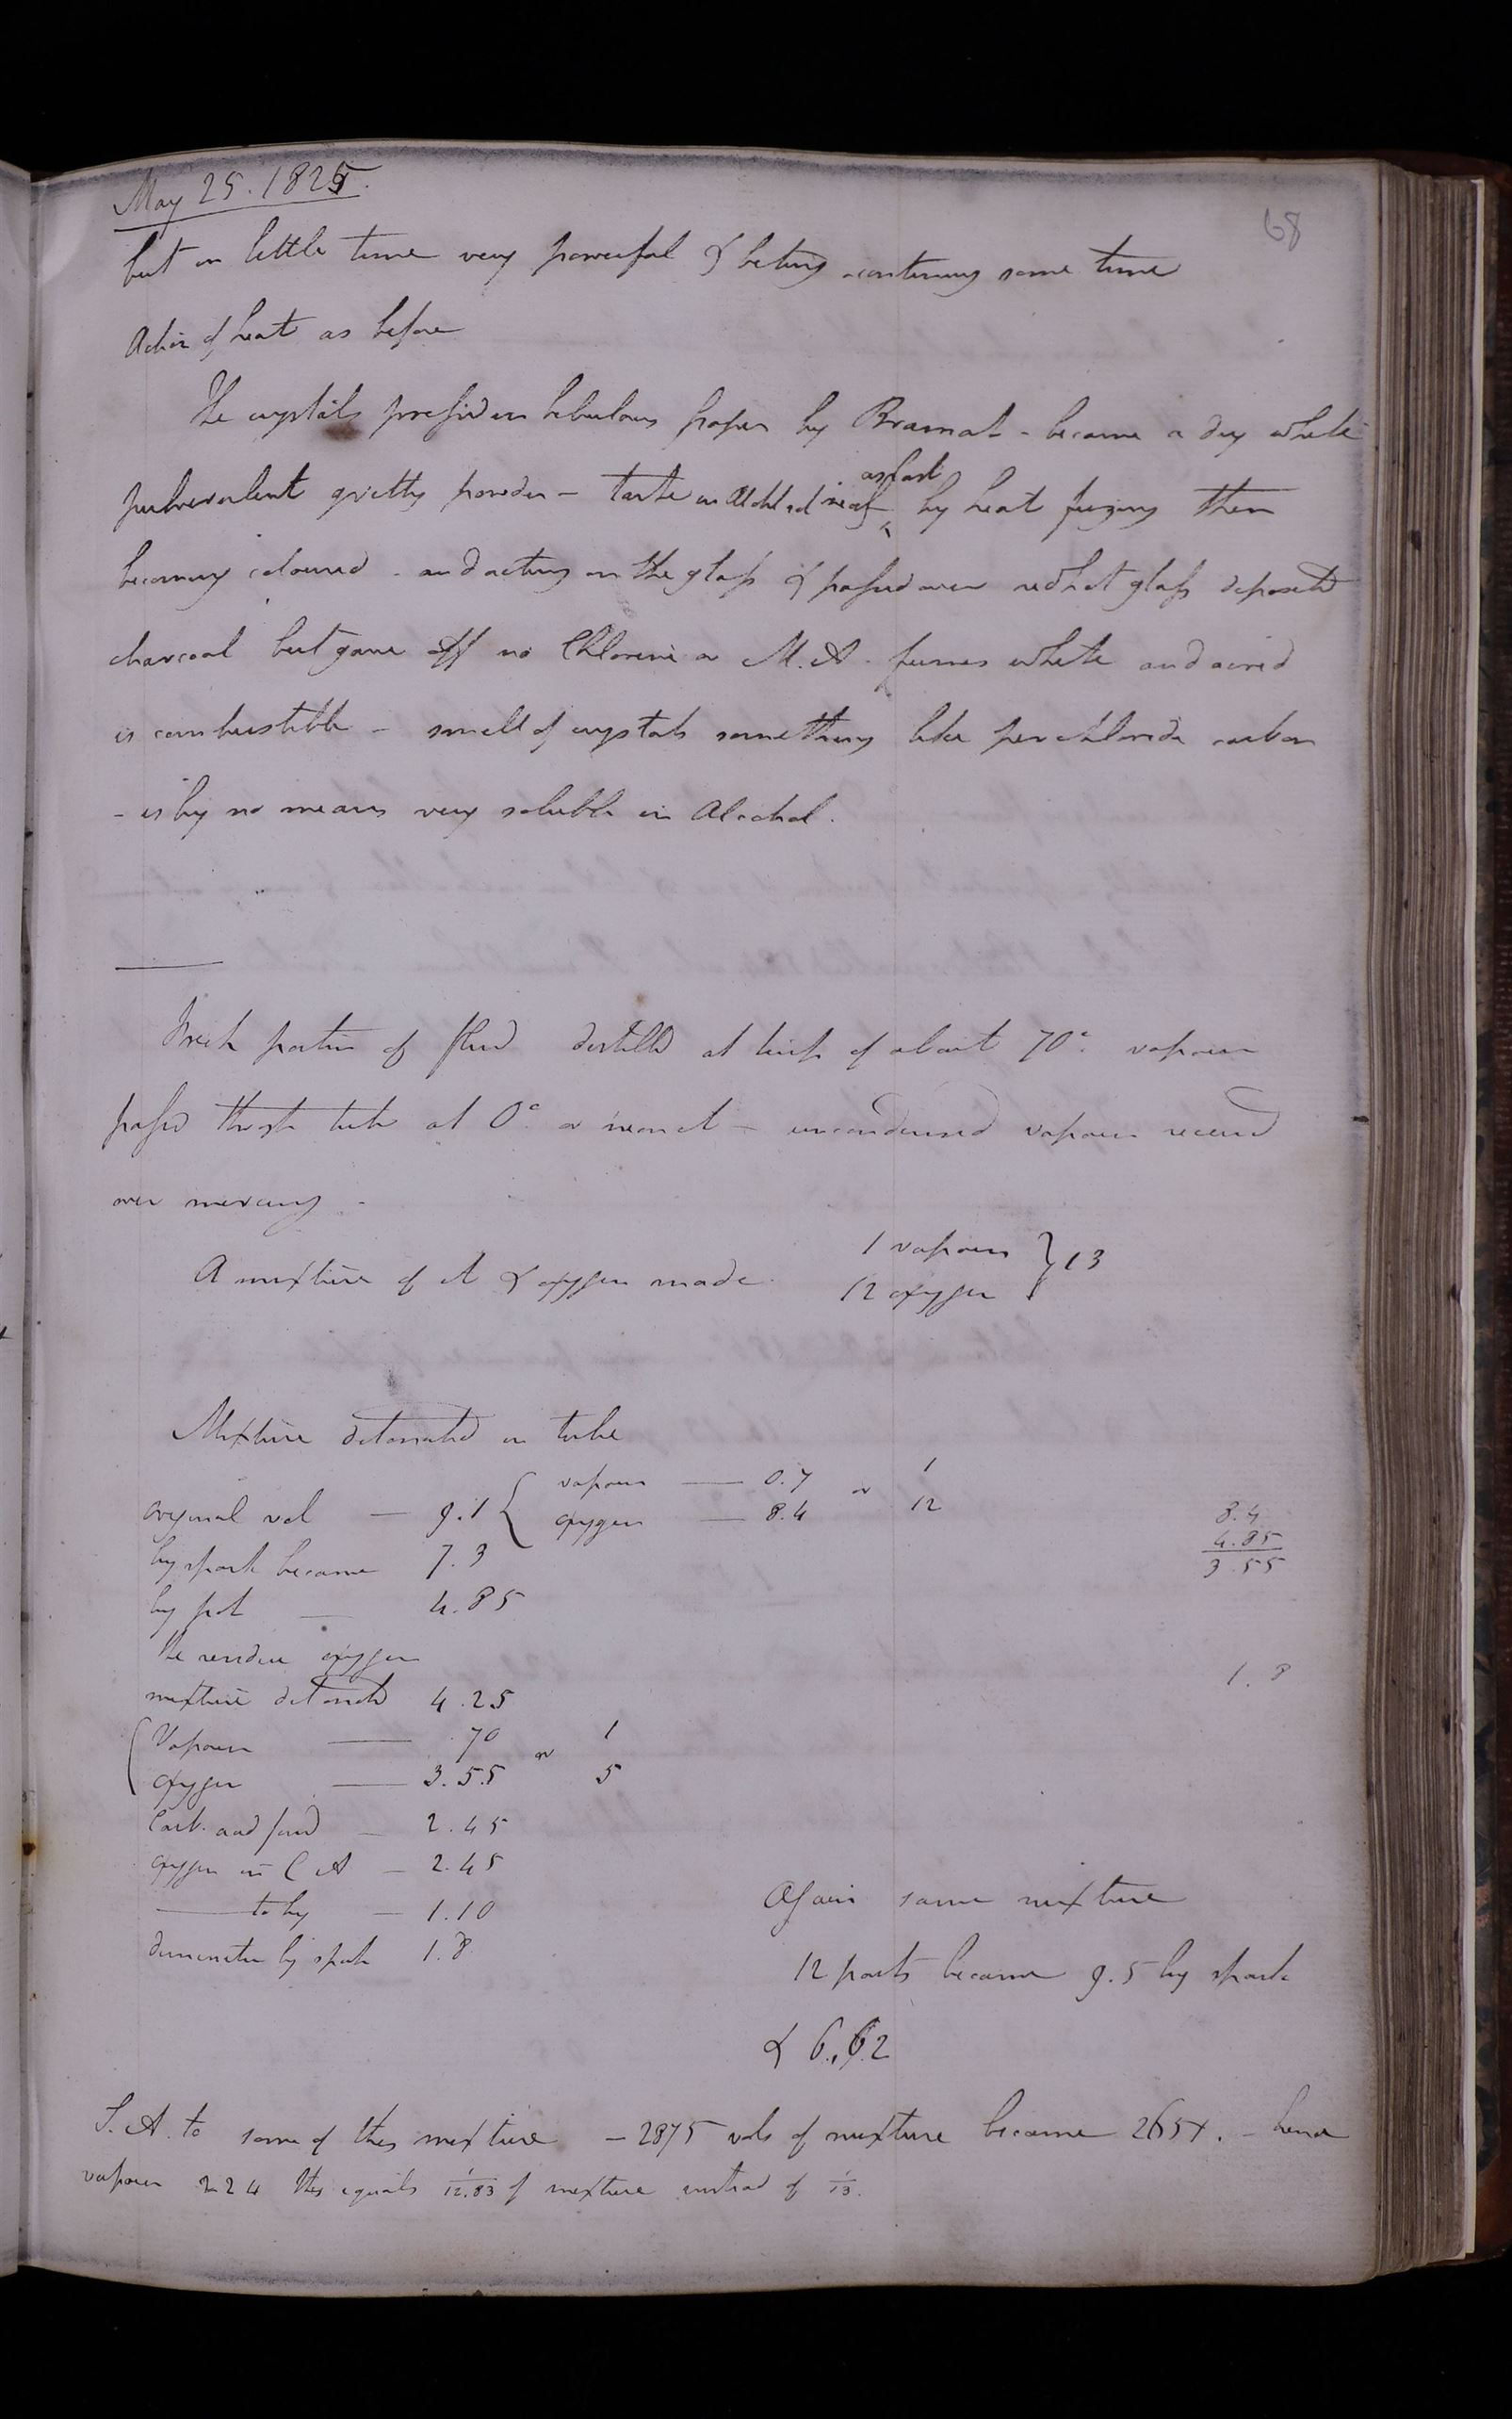 May 25. 1825.
68
but in little time very powerful & being continuing some time
Action of heat as before
The crystals pressed in bibulous paper by Bramah - became a dry white
pulverulent gritty powder - taste as fast by heat fuzing then
becoming coloured - and acting on the glass & passed over red hot glass deposited
charcoal but gave off no Chlorine or M.A. fumes white and acrid
is combustible - smell of crystals something like perchloride carbon
- is by no means very soluble in Alcohol.
Fresh portion of fluid distilled at temp of about 70°. vapour
passed through tube at 0° or near it - uncondensed vapour received
over mercury -
A mixture of it & oxygen made 1 vapour } 13
12 oxygen
Mixture detonated in tube
original vol — 9.1 { vapour — 0.7 or 1
oxygen — 8.4 12
by spark became 7.3
by pot — 4.85
8.4
4.85
3.55
the residue oxygen
mixture detonated 4.25
1.8
Vapour — .70 or 1
oxygen — 3.55 5
Carb. acid formd — 2.45
oxygen in C A — 2.45
— to hy — 1.10
diminution by spark 1.8
Again same mixture
12 parts became 9.5 by spark
& 6.62
S.A. to some of this mixture - 2875 vols of mixture became 2651. - hence
vapour 224 this equals 1/12.83 of mixture instead of 1/13.